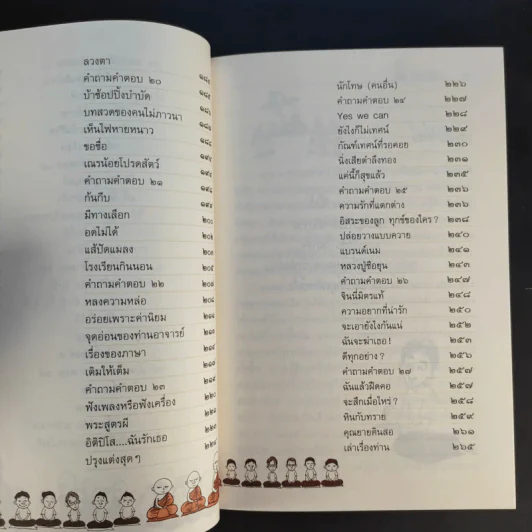 ลวงตา
คำถามคำตอบ ๒๐
บ้าช้อปปิ้งบำบัด
บทสวดของคนไม่ภาวนา
เห็นไฟหายหนาว
ขอชื่อ
เณรน้อยโปรดสัตว์
คำถามคำตอบ ๒๑
ก้นกึบ
มีทางเลือก
อดไม่ได้
แส้ปัดแมลง
โรงเรียนกินนอน
คำถามคำตอบ ๒๒
หลงความหล่อ
อร่อยเพราะค่านิยม
จุดอ่อนของท่านอาจารย์
เรื่องของภาษา
เติมให้เต็ม
คำถามคำตอบ ๒๓
ฟังเพลงหรือฟังเครื่อง
พระสูตรผี
อิติปิโส....ฉันรักเธอ
ปรุงแต่งสุดๆ
นักโทษ (คนอื่น) ๒๒๖
คำถามคำตอบ ๒๔ ๒๒๗
Yes we can ๒๒๘
ยังไงก็ไม่เทศน์ ๒๒๙
กัณฑ์เทศน์ที่รอคอย ๒๓๐
นิ่งเสียตำลึงทอง ๒๓๑
แค่นี้ก็สุขแล้ว ๒๓๕
คำถามคำตอบ ๒๕ ๒๓๖
ความรักที่แตกต่าง ๒๓๖
อิสระของลูก ทุกข์ของใคร? ๒๓๘
ปล่อยวางแบบควาย ๒๔๐
แบรนด์เนม ๒๔๑
หลวงปู่ชื่อยุน ๒๔๓
คำถามคำตอบ ๒๖ ๒๔๗
จีนนี่มิตรแท้ ๒๔๘
ความอยากที่น่ารัก ๒๕๐
จะเอายังไงกันแน่ ๒๕๒
ฉันจะฆ่าเธอ! ๒๕๓
ดีทุกอย่าง? ๒๕๖
คำถามคำตอบ ๒๗ ๒๕๗
ฉันแล้วฝืดคอ ๒๕๗
จะสึกเมื่อไหร่? ๒๕๘
หินกับทราย ๒๕๙
คุณยายคืนสอ ๒๖๑
เล่าเรื่องท่าน ๒๖๕